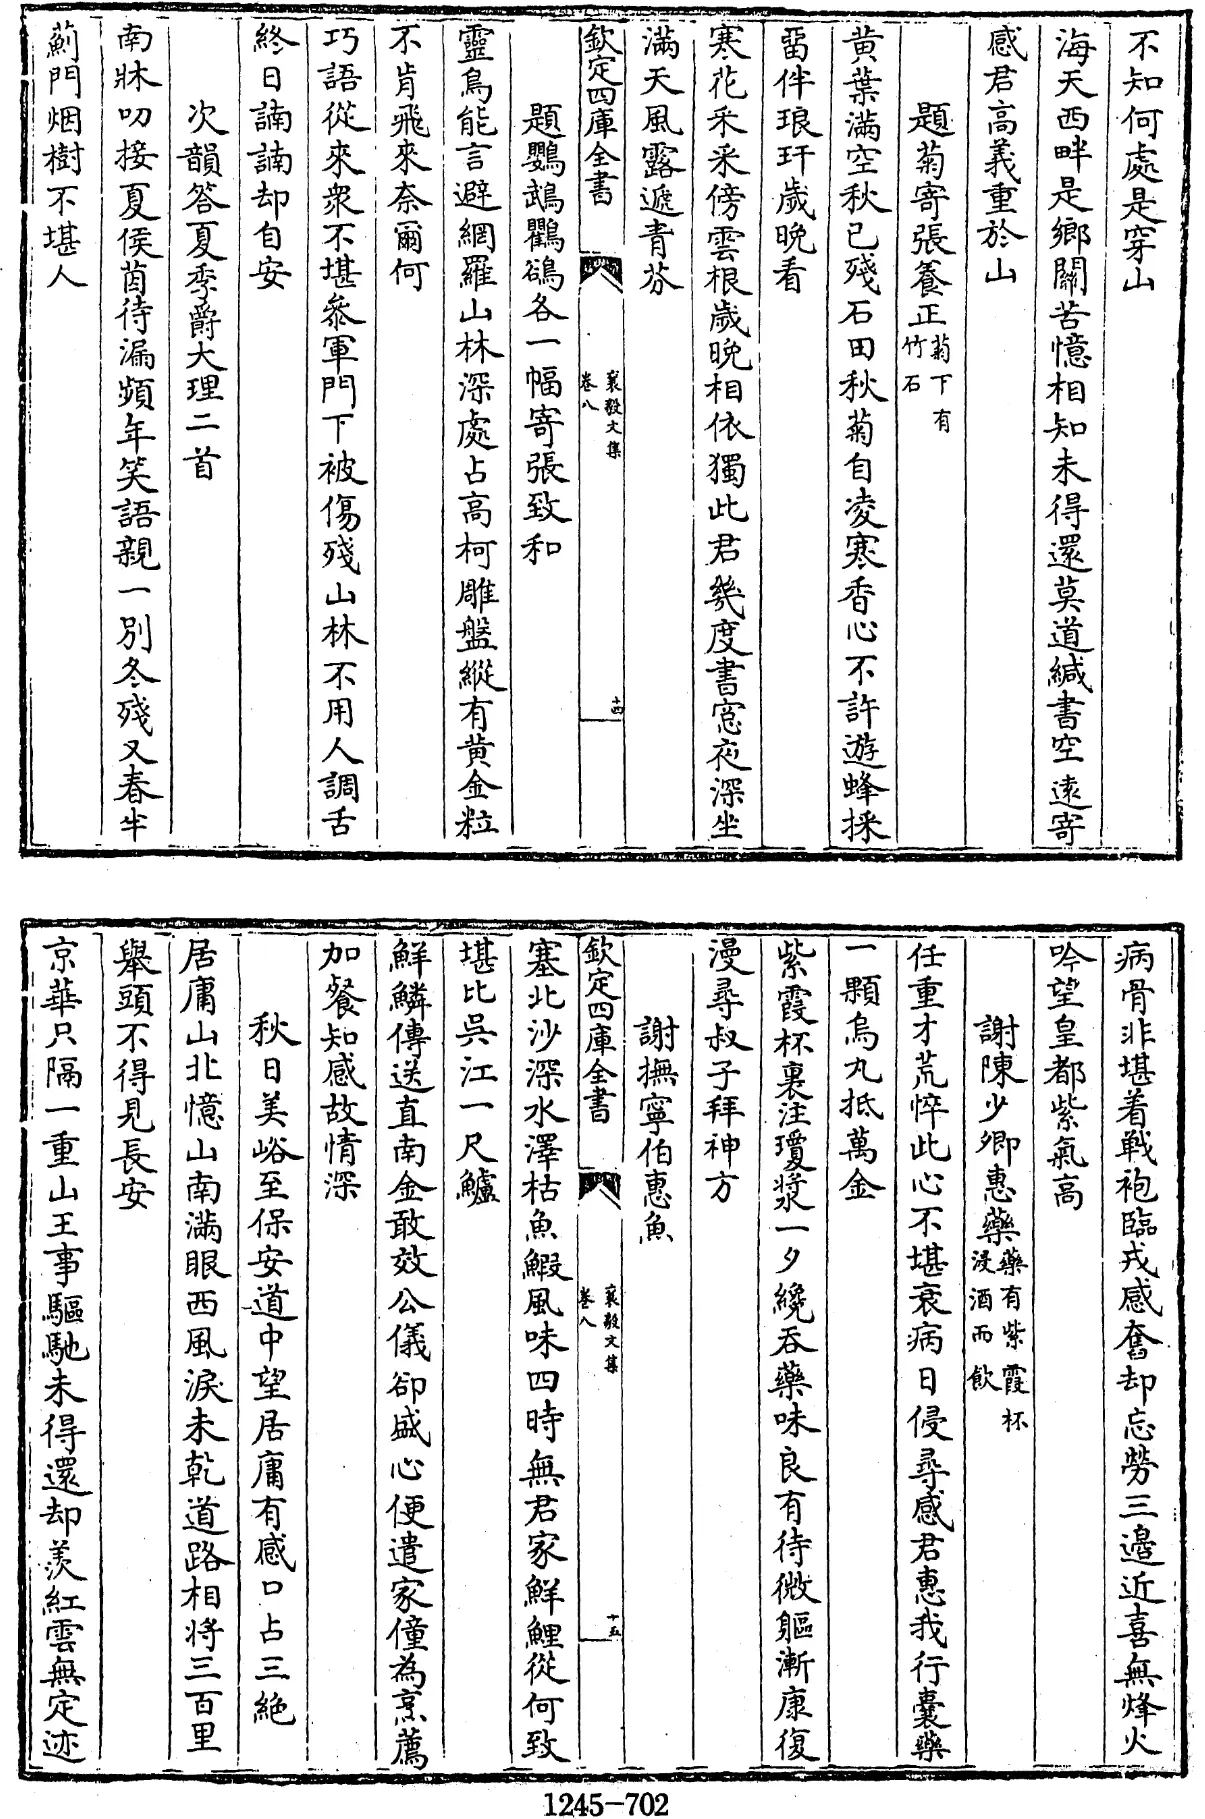 不知何處是穿山
海天西畔是鄉關苦憶相知未得還莫道緘書空遠寄
感君高義重於山
題菊寄張養正菊下有竹石
黃葉滿空秋已殘石田秋菊自凌寒香心不許遊蜂採
留伴琅玕歲晚看
寒花采采傍雲根歲晚相依獨此君幾度書窓夜深坐
滿天風露遞青芬
欽定四庫全書
襄毅文集
卷八
十四
題鸚鵡鸜鵒各一幅寄張致和
靈鳥能言避網羅山林深處占高柯雕盤縱有黃金粒
不肯飛來奈爾何
巧語從來衆不堪叅軍門下被傷殘山林不用人調舌
終日諵諵却自安
次韻答夏季爵大理二首
南牀叨接夏侯茵待漏頻年笑語親一別冬殘又春半
薊門烟樹不堪人
病骨非堪着戰袍臨戎感奮却忘勞三邉近喜無烽火
吟望皇都紫氣高
謝陳少卿惠藥藥有紫霞杯浸酒而飲
任重才荒悴此心不堪衰病日侵尋感君惠我行囊藥
一顆烏丸抵萬金
紫霞杯裏注瓊漿一夕纔吞藥味良有待微軀漸康復
漫尋叔子拜神方
謝撫寧伯惠魚
欽定四庫全書
襄毅文集
卷八
十五
塞北沙深水澤枯魚鰕風味四時無君家鮮鯉從何致
堪比吳江一尺鱸
鮮鱗傳送直南金敢效公儀卻盛心便遣家僮為烹薦
加餐知感故情深
秋日美峪至保安道中望居庸有感口占三絶
居庸山北憶山南滿眼西風淚未乾道路相將三百里
舉頭不得見長安
京華只隔一重山王事驅馳未得還却羨紅雲無定迹
1245-702